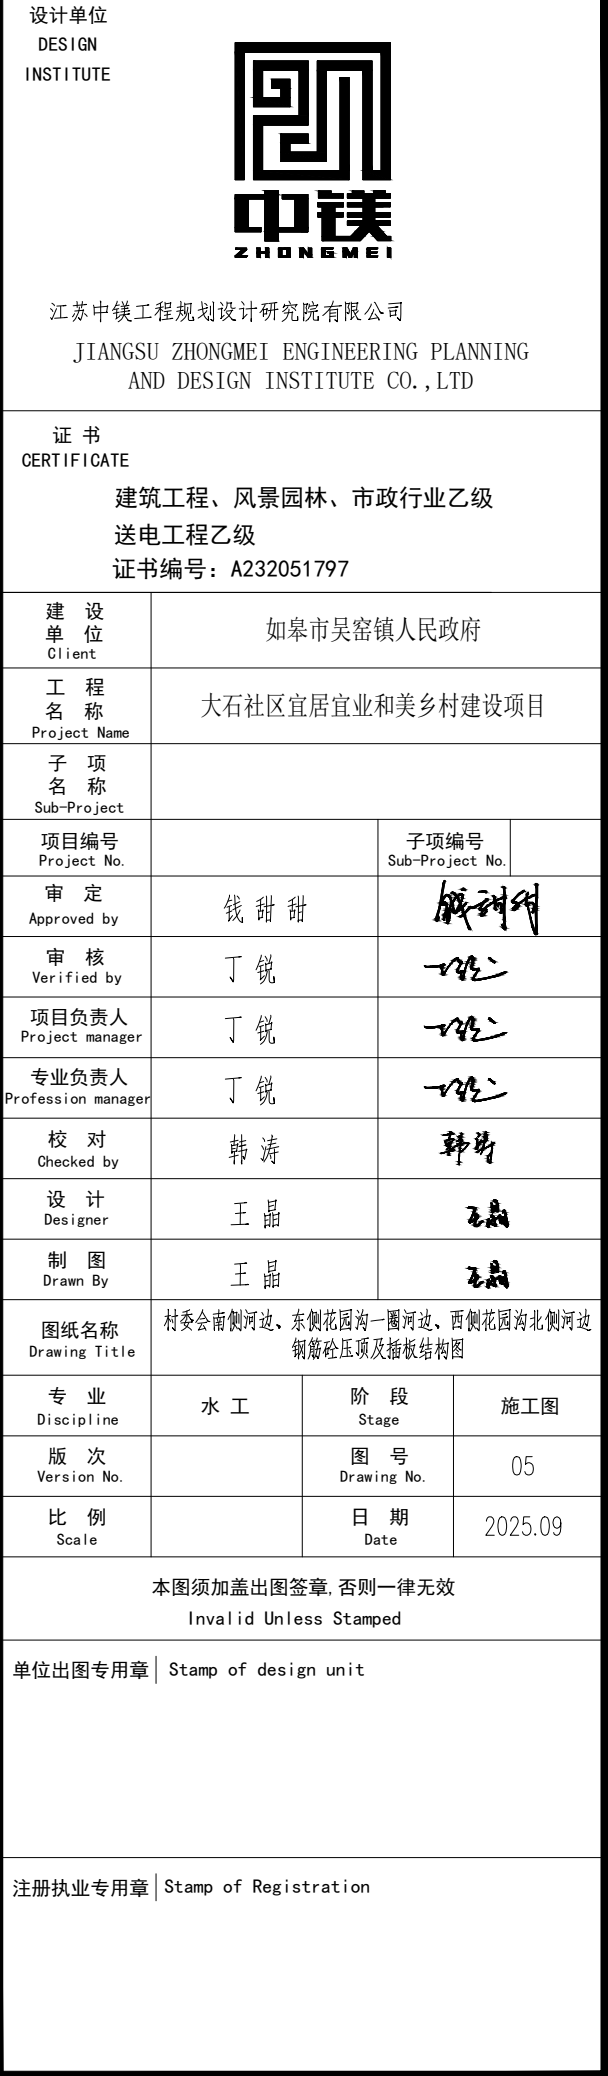 设计单位
DESIGN
INSTITUTE
中镁
ZHONGMEI
江苏中镁工程规划设计研究院有限公司
JIANGSU ZHONGMEI ENGINEERING PLANNING
AND DESIGN INSTITUTE CO.,LTD
证 书
CERTIFICATE
建筑工程、风景园林、市政行业乙级
送电工程乙级
证书编号：A232051797
建 设
单 位
Client
如皋市吴窑镇人民政府
工 程
名 称
Project Name
大石社区宜居宜业和美乡村建设项目
子 项
名 称
Sub-Project
项目编号
Project No.
子项编号
Sub-Project No.
审 定
Approved by
钱 甜 甜
钱甜甜
审 核
Verified by
丁 锐
丁锐
项目负责人
Project manager
丁 锐
丁锐
专业负责人
Profession manager
丁 锐
丁锐
校 对
Checked by
韩 涛
韩涛
设 计
Designer
王 晶
王晶
制 图
Drawn By
王 晶
王晶
图纸名称
Drawing Title
村委会南侧河边、东侧花园沟一圈河边、西侧花园沟北侧河边
钢筋砼压顶及插板结构图
专 业
Discipline
水 工
阶 段
Stage
施工图
版 次
Version No.
图 号
Drawing No.
05
比 例
Scale
日 期
Date
2025.09
本图须加盖出图签章,否则一律无效
Invalid Unless Stamped
单位出图专用章 Stamp of design unit
注册执业专用章 Stamp of Registration